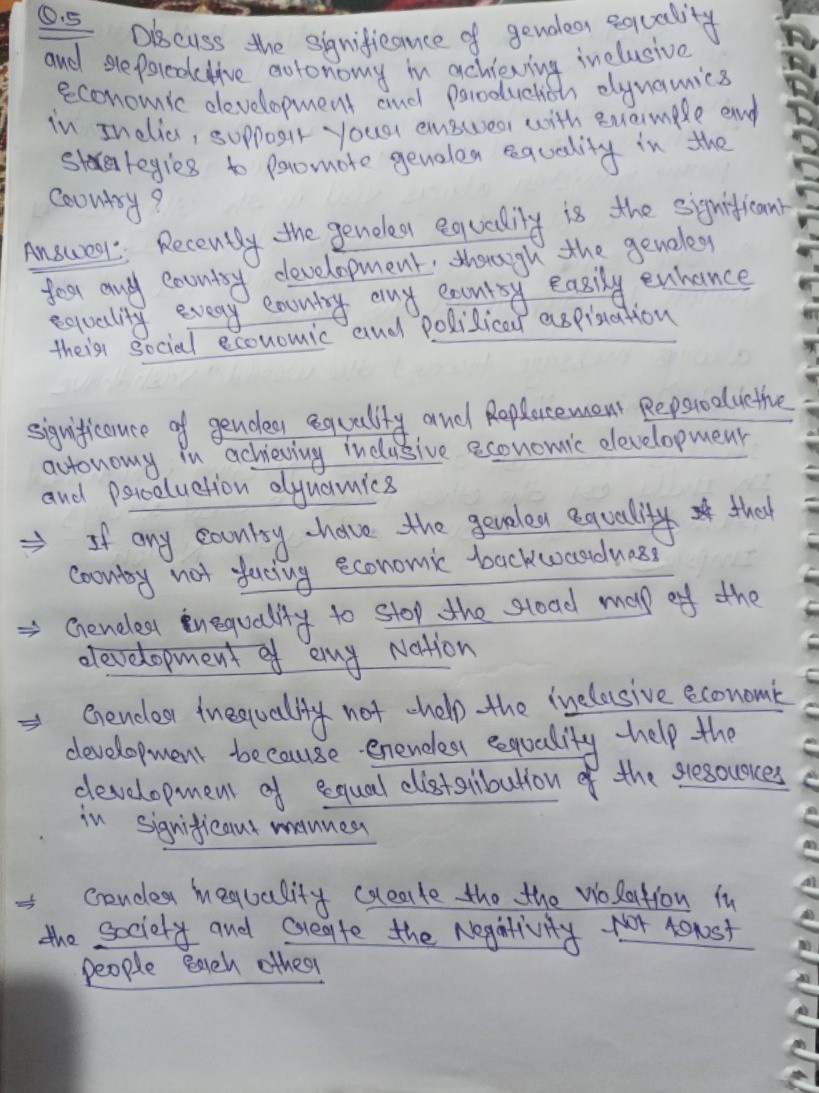 Q.5 Discuss the significance of gender equality
and reproductive autonomy in achieving inclusive
economic development and production dynamics
in India, support your answer with example and
strategies to promote gender equality in the
country?
Answer: Recently the gender equality is the significant
for any country development. through the gender
equality every country any country easily enhance
their social economic and political aspiration
significance of gender equality and Replacement Reproductive
autonomy in achieving inclusive economic development
and production dynamics
⇒ If any country have the gender equality that
country not facing economic backwardness
⇒ Gender inequality to stop the road map of the
development of any Nation
⇒ Gender inequality not help the inclusive economic
development because Gender equality help the
development of equal distribution of the resources
in significant manner
⇒ Gender inequality create the the violation in
the society and create the Negitivity Not
people each other